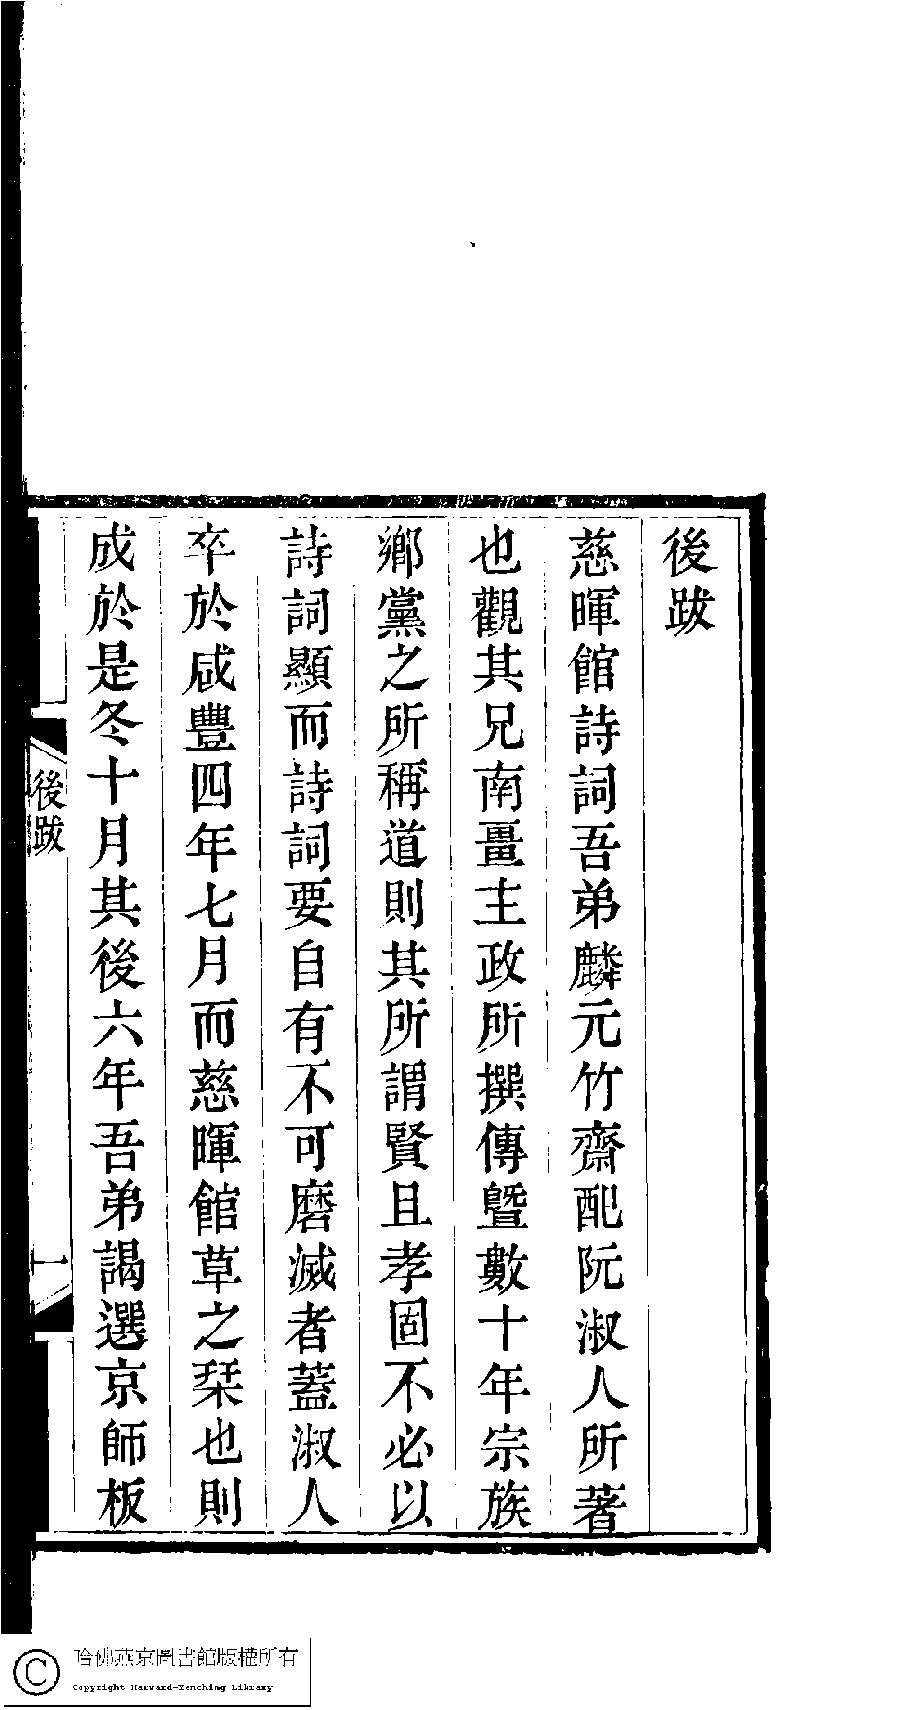 後跋
慈暉館詩詞吾弟麟元竹齋配阮淑人所著
也觀其兄南畺主政所撰傳曁數十年宗族
鄉黨之所稱道則其所謂賢且孝固不必以
詩詞顯而詩詞要自有不可磨滅者蓋淑人
卒於咸豐四年七月而慈暉館草之栞也則
成於是冬十月其後六年吾弟謁選京師板
後跋
一
哈佛燕京圖書館版權所有
Copyright Harvard-Yenching Library